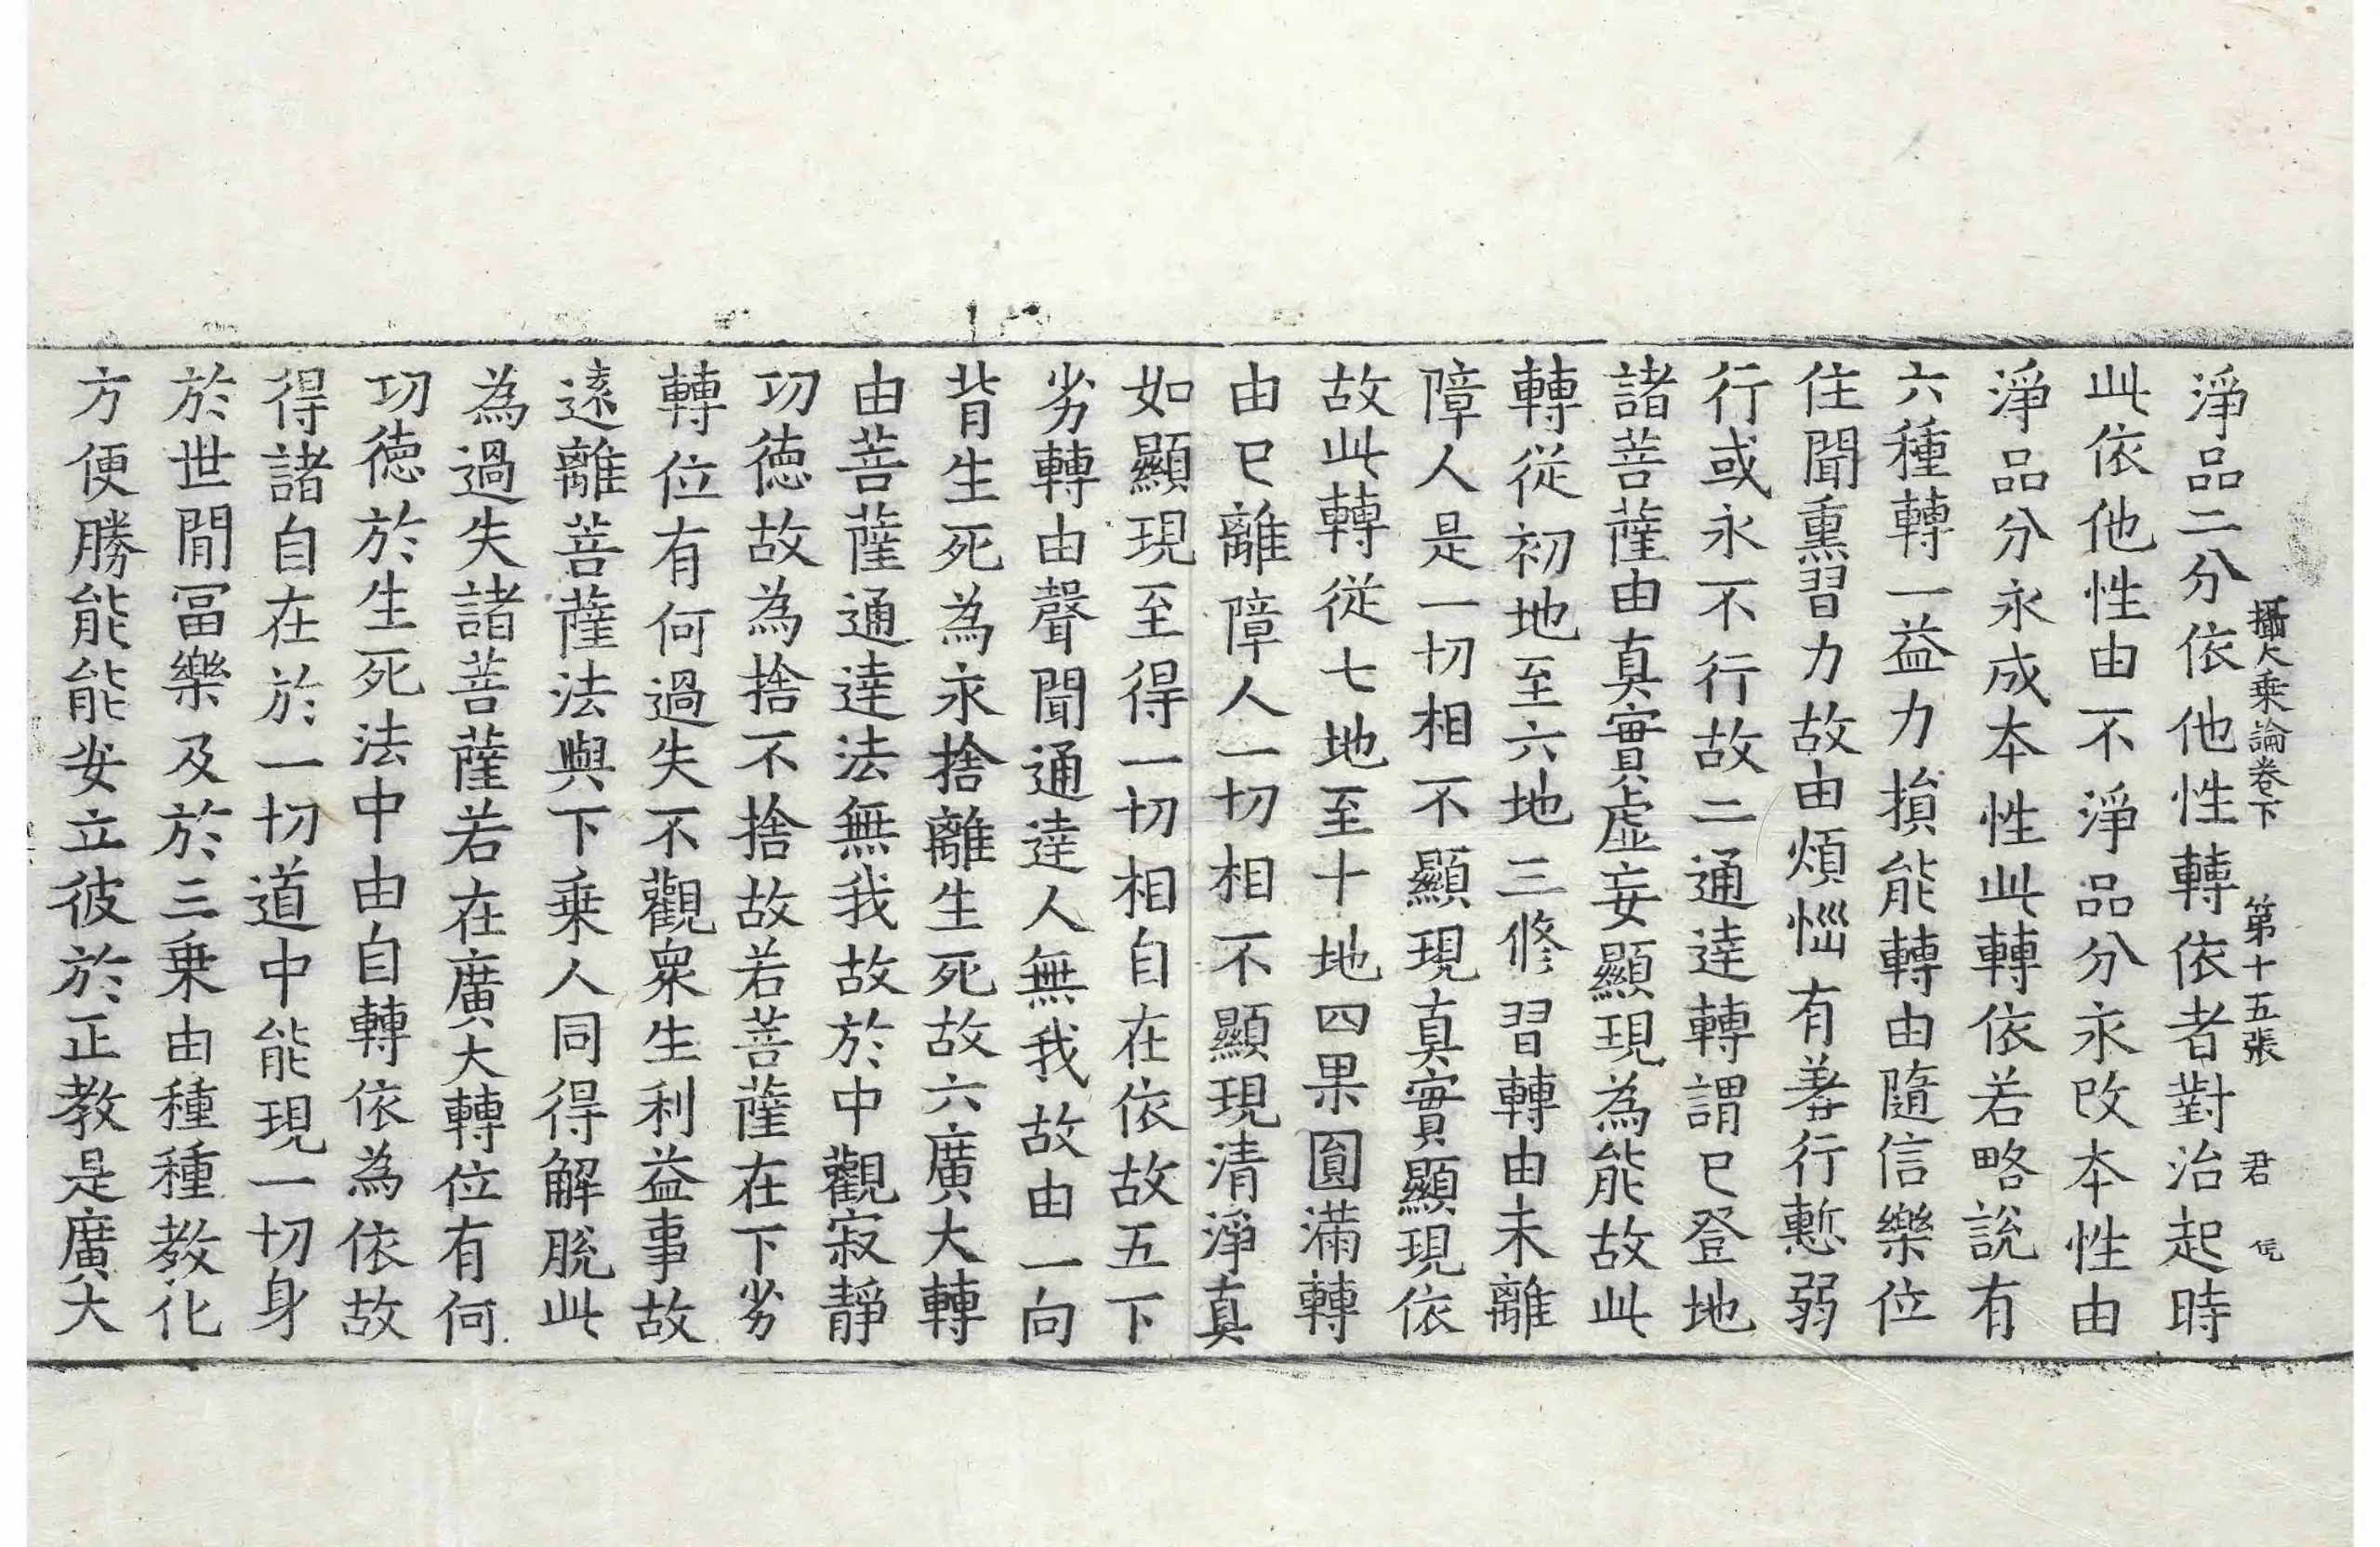 攝大乘論卷下　第十五張　君
淨品二分依他性轉依者對治起時
此依他性由不淨品分永改本性由
淨品分永成本性此轉依若略說有
六種轉一益力損能轉由隨信樂位
住聞熏習力故由煩惱有羞行慙弱
行或永不行故二通達轉謂已登地
諸菩薩由真實虛妄顯現為能故此
轉從初地至六地三修習轉由未離
障人是一切相不顯現真實顯現依
故此轉從七地至十地四果圓滿轉
由已離障人一切相不顯現清淨真
如顯現至得一切相自在依故五下
劣轉由聲聞通達人無我故由一向
背生死為永捨離生死故六廣大轉
由菩薩通達法無我故於中觀寂靜
功德故為捨不捨故若菩薩在下劣
轉位有何過失不觀眾生利益事故
遠離菩薩法與下乘人同得解脫此
為過失諸菩薩若在廣大轉位有何
功德於生死法中由自轉依為依故
得諸自在於一切道中能現一切身
於世間冨樂及於三乘由種種教化
方便勝能能安立彼於正教是廣大